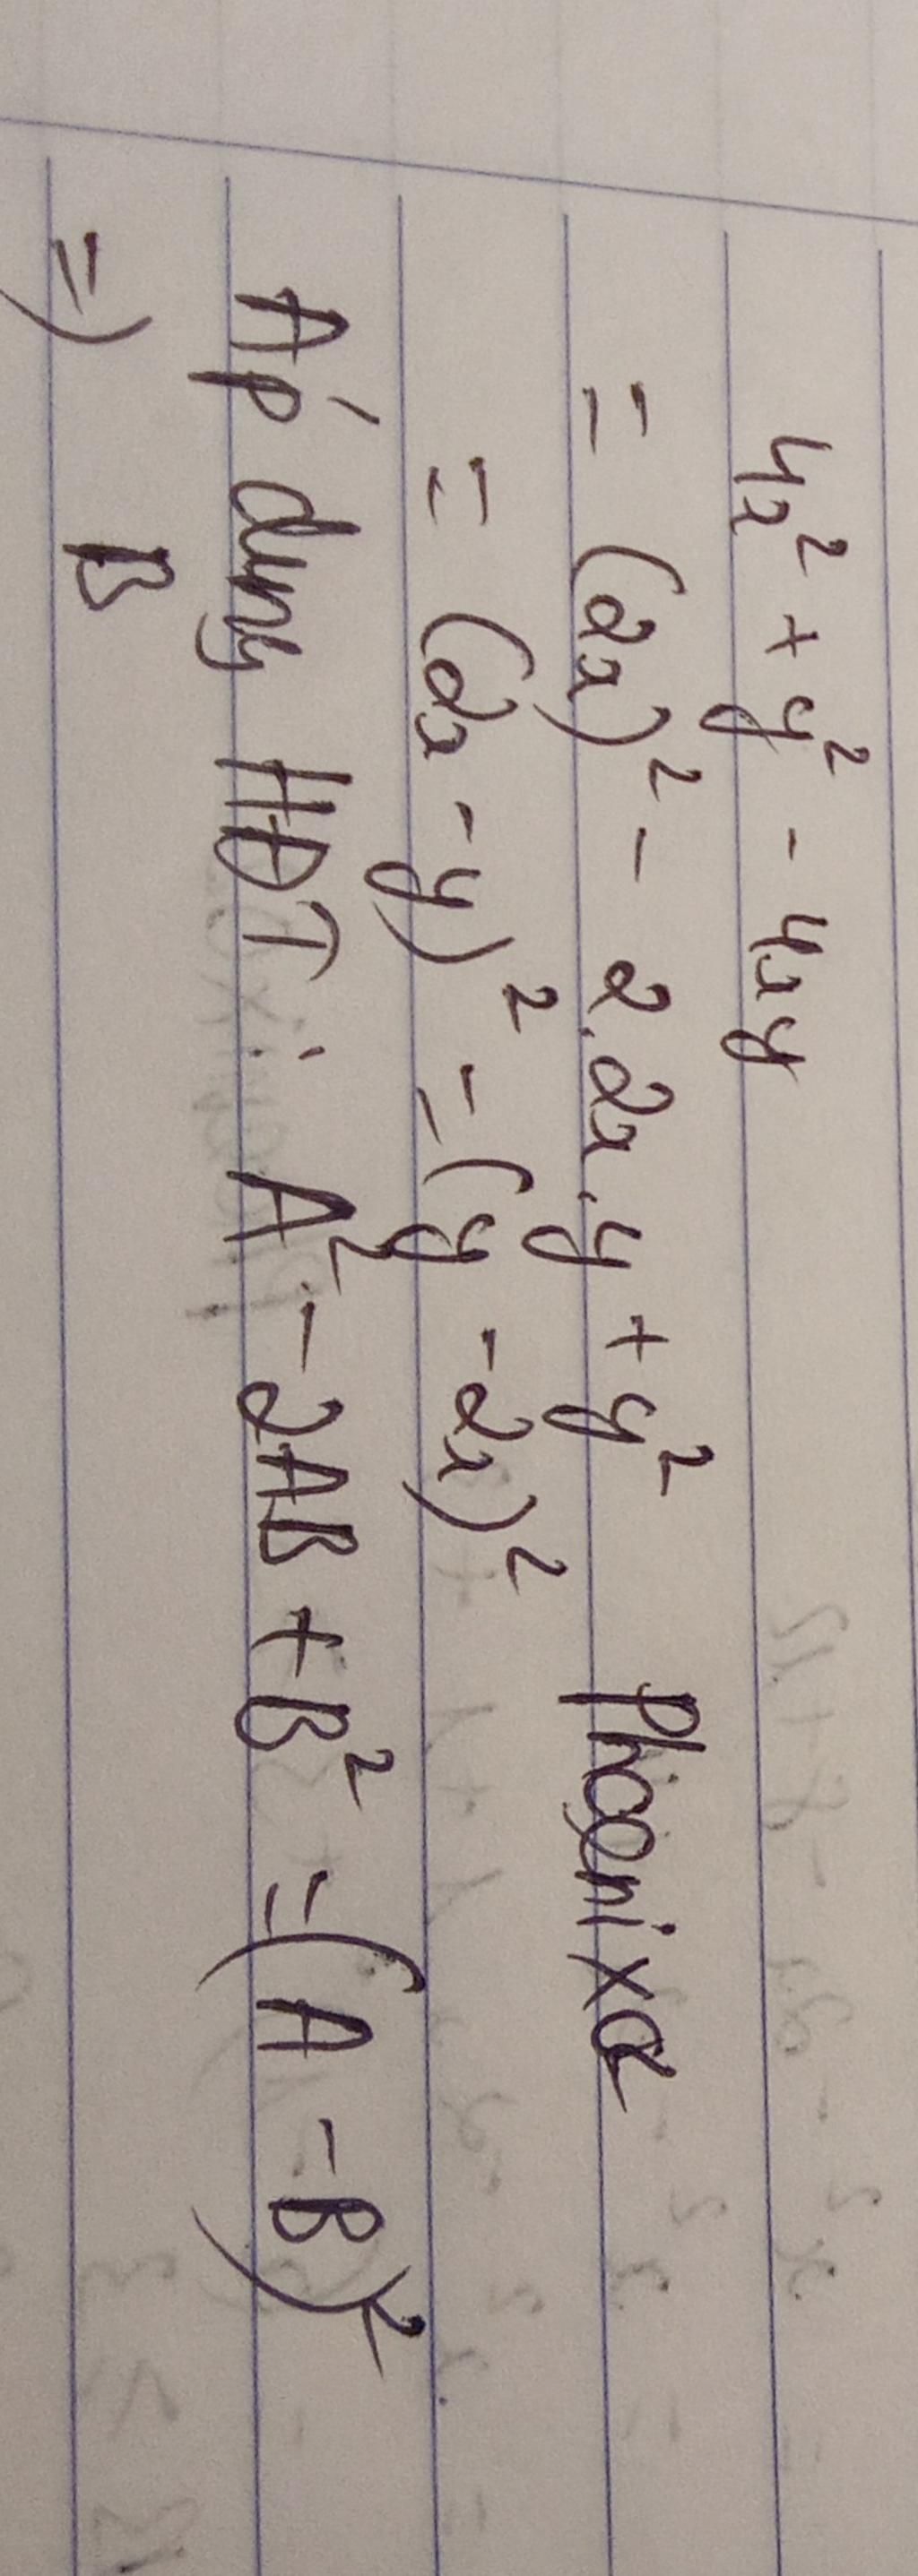 4x² + y² - 4xy
= (2x)² - 2.2x.y + y² Phoenixa
= (2x - y)² = (y - 2x)²
Áp dụng HĐT : A² - 2AB + B² = (A - B)²
=) B